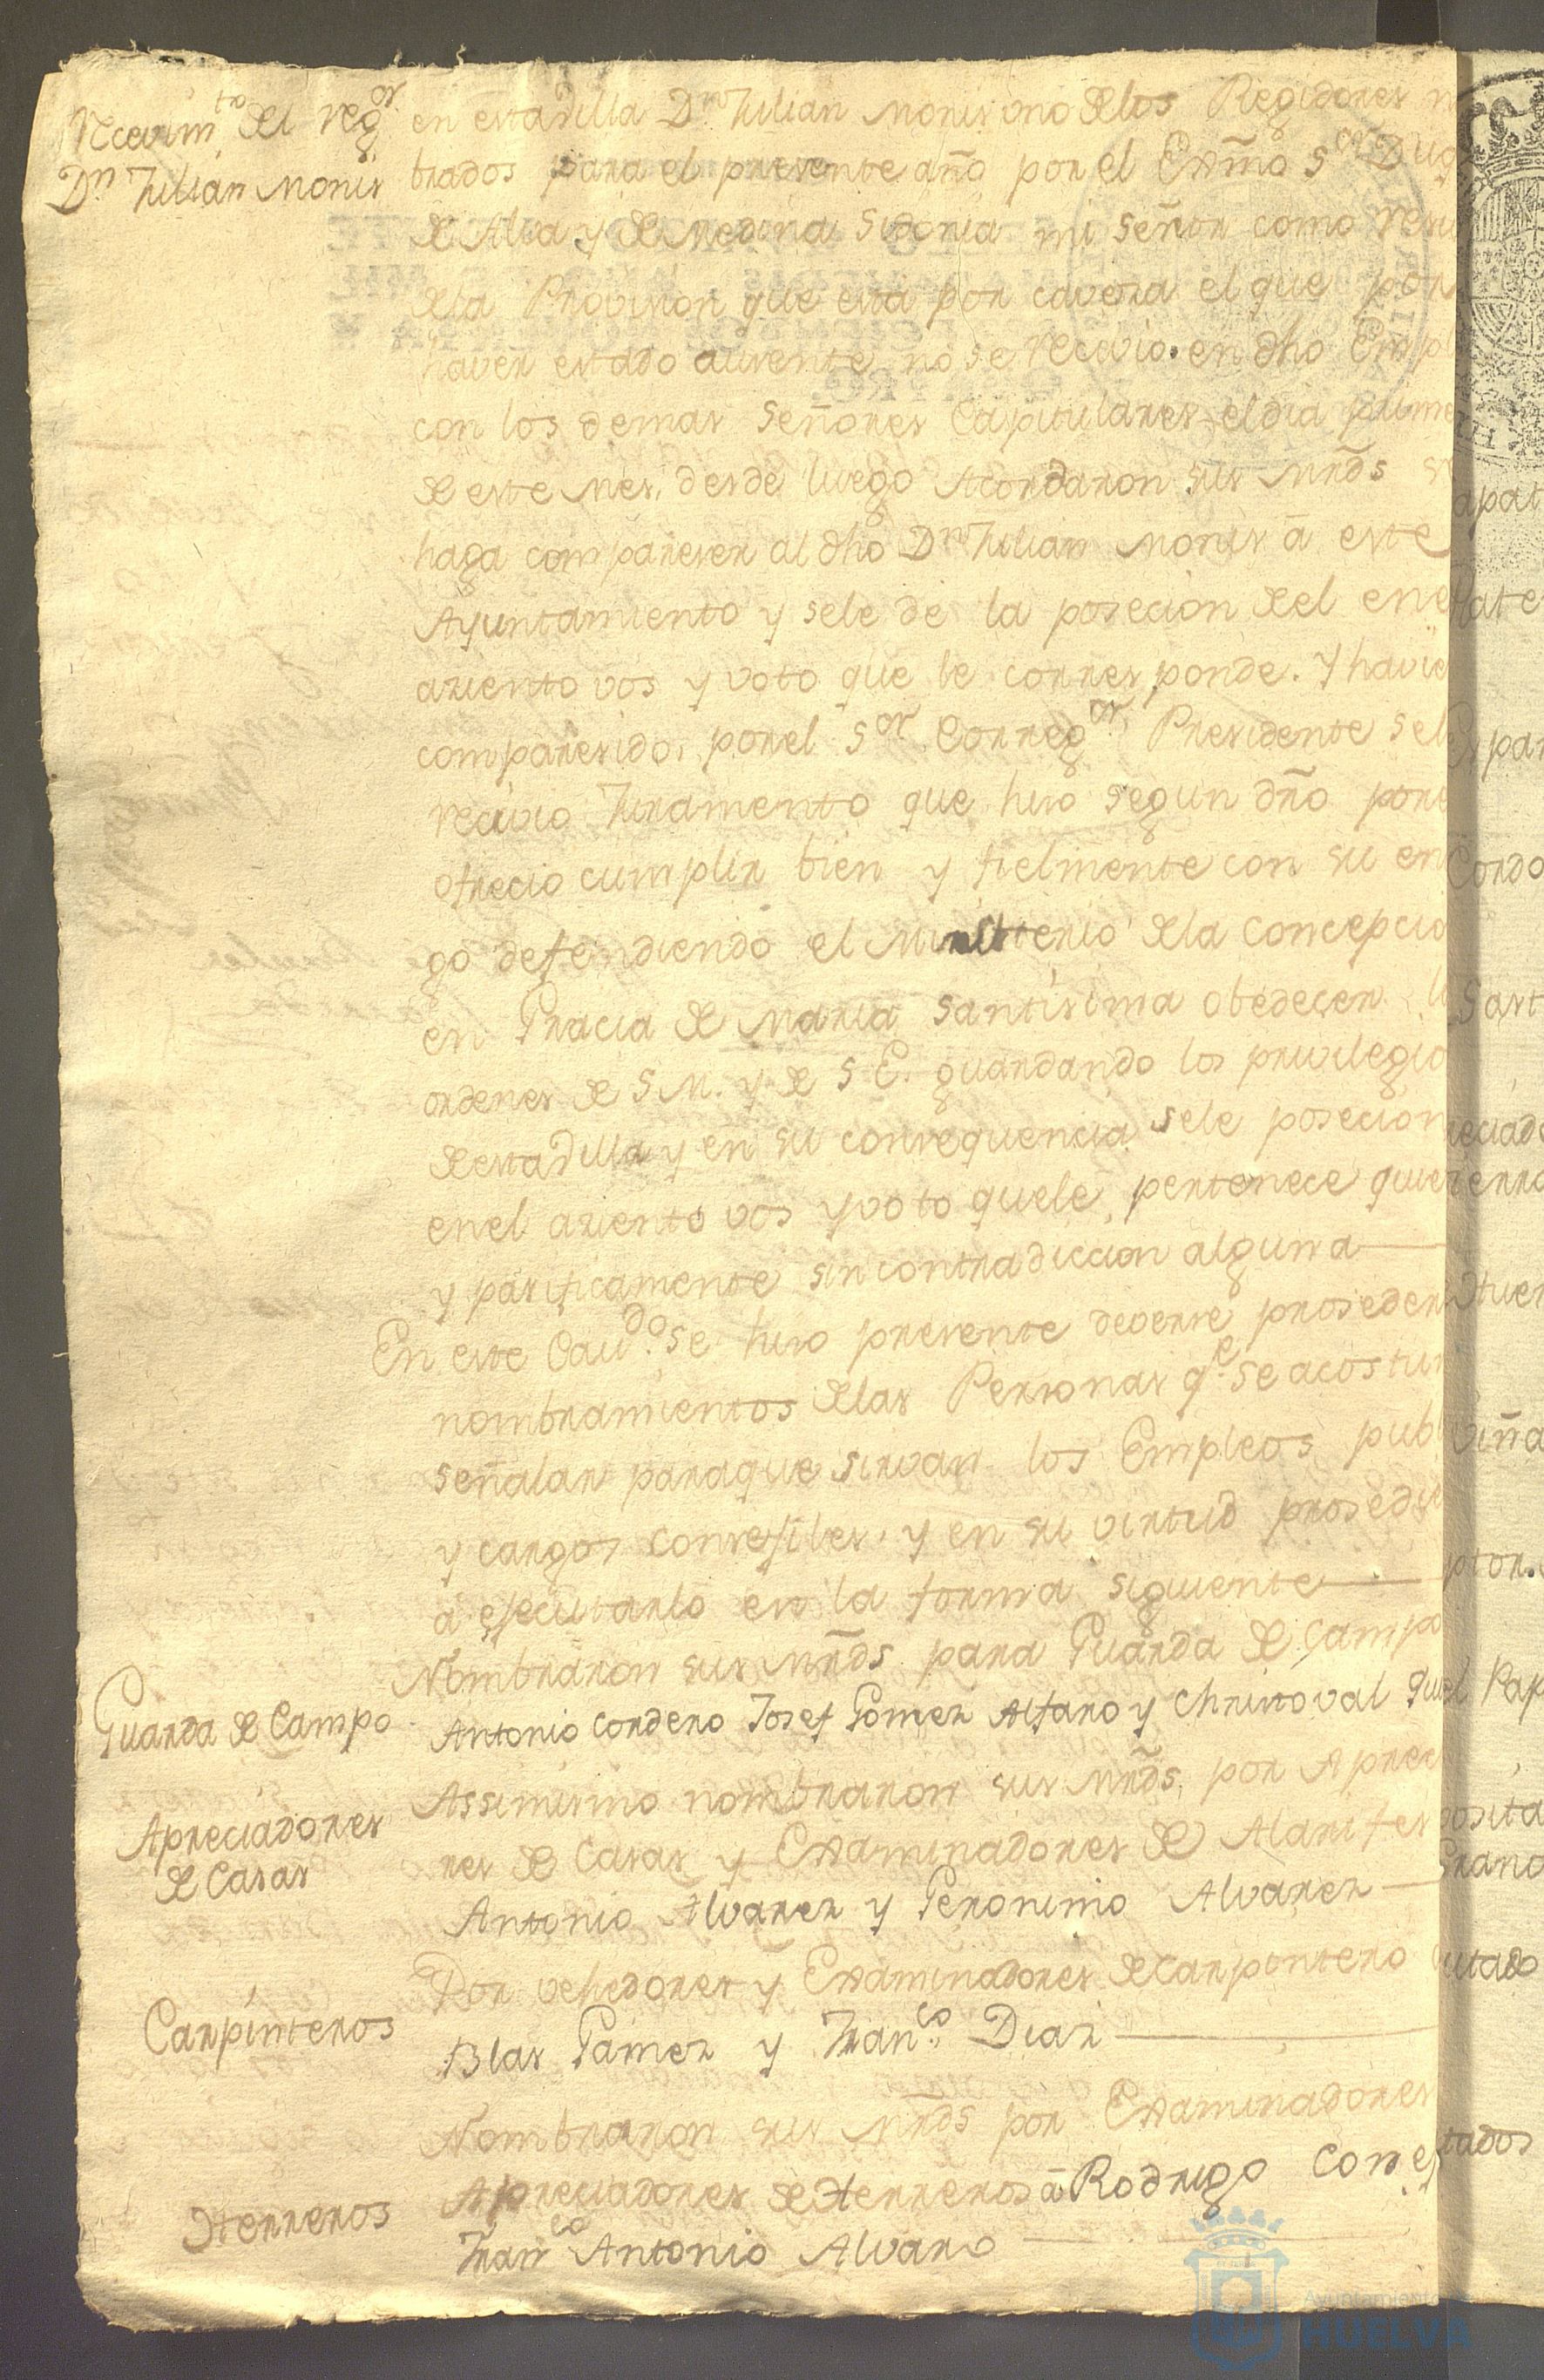 Recevim.to del reg.or
D.n Julian Monis
en esta Villa D.n Julian Monis uno de los Regidores
brados para el presente año por el Exmo S.or Duq
de Alva y de Medina Sidonia mi señor como resu
de la Provision que esta por cavesa el que por
haver estado ausente no se recivio en dho Empl
con los demas señores Capitulares el dia prime
de este mes, desde luego Acordaron sus mrds se
haga compareser al dho D.n Julian Monis â este
Ayuntamiento y sele de la posecion del en e
asiento vos y voto que le corresponde. Y havie
comparesido, por el S.or Correg.or Presidente sel
recivio Juramento que hiso segun dro por
ofrecio cumplir bien y fielmente con su en
go defendiendo el Ministerio de la Concepcio
en Gracia de Maria Santisima obedecer
ordenes de S M. y de S E. guardando los privilegio
de esta Villa y en su consequencia sele posecion
en el asiento vos y voto quele pertenece quie
y pasificamente sin contradiccion alguna
En este Cav.do se hiso presente deverse proseder
nombramientos de las Personas q.e se acostu
señalar paraque sirvan los Empleos pub
y cargos consejiles, y en su virtud prosedi
a ejecutarlo en la forma siguiente
Guarda de Campo
Nombraron sus mrds para Guarda de Campo
Antonio Cordero Josef Gomez Alfaro y Christoval
Apreciadores
de Casas
Assimismo nombraron sus mrds, por Aprec
res de Casas y Examinadores de Alarifes
Antonio Alvarez y Geronimo Alvarez
Carpinteros
Por vehedores y Examinadores de carpintero
Blas Gamez y Fran.co Diaz
Nombraron sus mrds por Examinadores
Herreros
Apreciadores de Herreros â Rodrigo
Fran.co Antonio Alvaro
apat
late
par
Cordo
Sast
reciad
erra
Huer
viña
ptor.
Pap
posita
Grano
utado
tados
Ayuntamiento
HUELVA